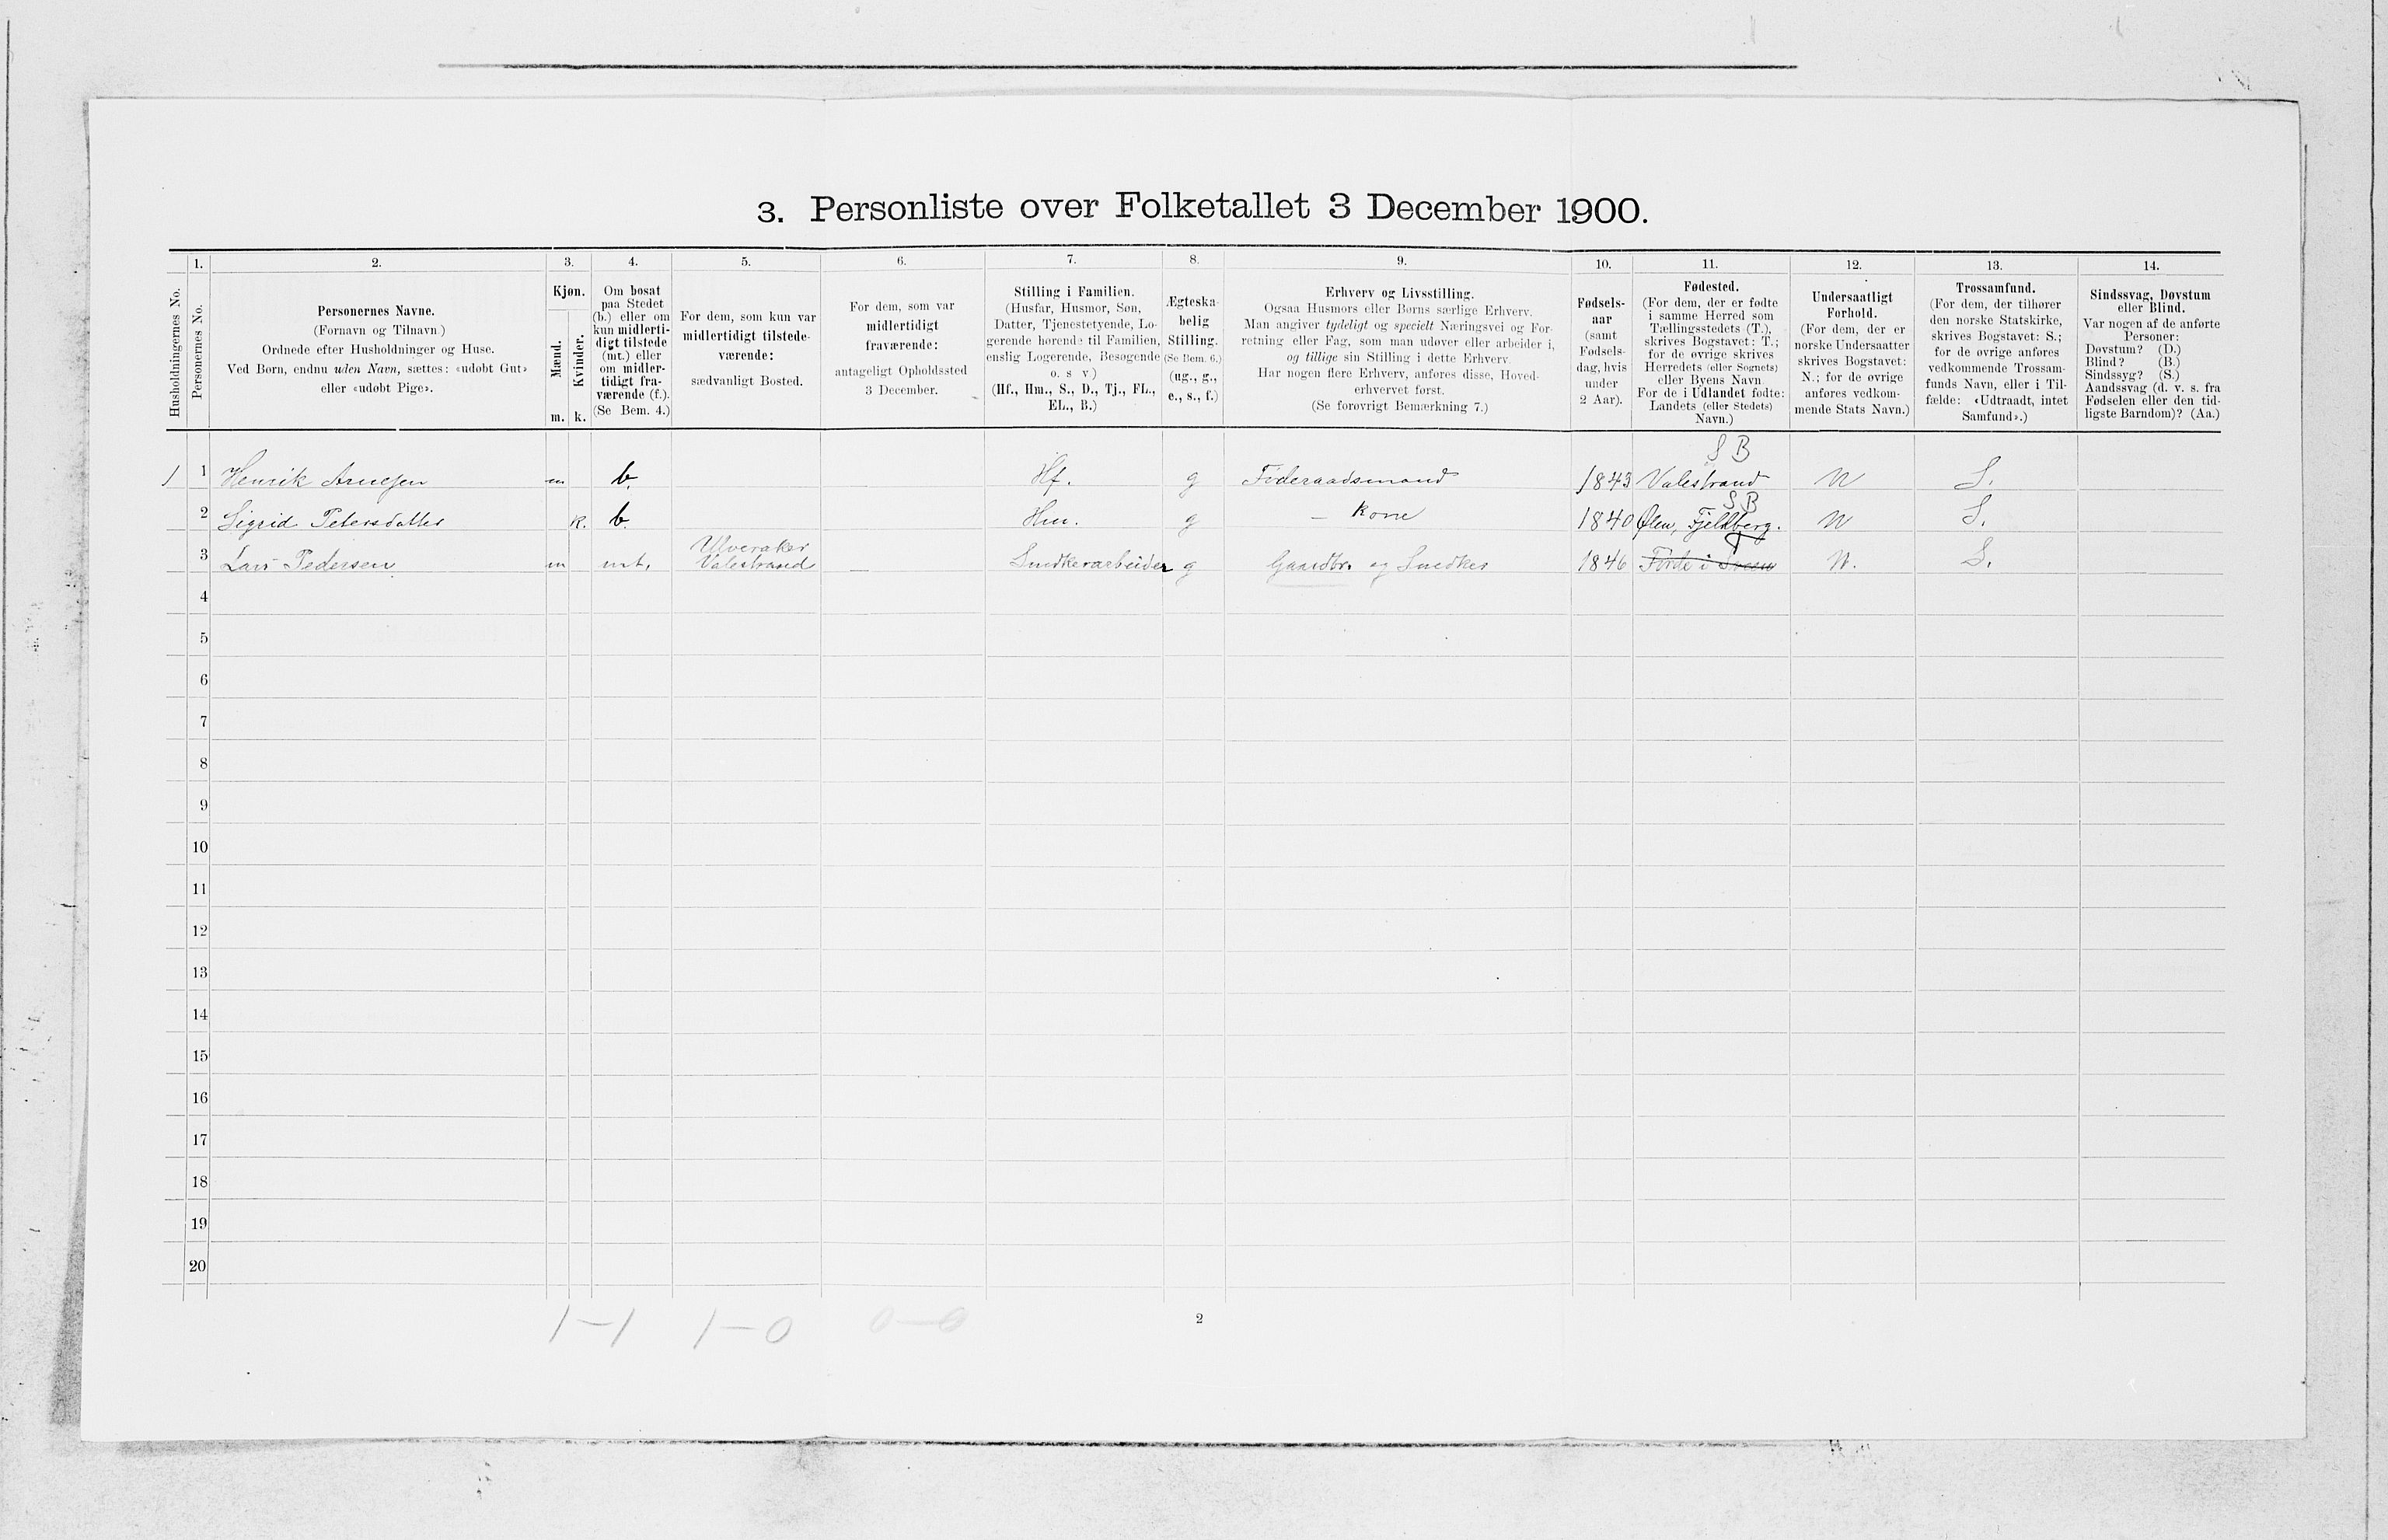 3. Personliste over Folketallet 3 December 1900.
1. 2. 3. 4. 5. 6. 7. 8. 9. 10. 11. 12. 13. 14.
Husholdningernes No.
Personernes No.
Personernes Navne.
(Fornavn og Tilnavn.)
Ordnede efter Husholdninger og Huse.
Ved Børn, endnu uden Navn, sættes: «udøbt Gut»
eller «udøbt Pige».
Kjøn.
Mænd.
Kvinder.
m. k.
Om bosat
paa Stedet
(b.) eller om
kun midlerti-
digt tilstede
(mt.) eller
om midler-
tidigt fra-
værende (f.).
(Se Bem. 4.)
For dem, som kun var
midlertidigt tilstede-
værende:
sædvanligt Bosted.
For dem, som var
midlertidigt
fraværende:
antageligt Opholdssted
3 December.
Stilling i Familien.
(Husfar, Husmor, Søn,
Datter, Tjenestetyende, Lo-
gerende hørende til Familien,
enslig Logerende, Besøgende
o. s. v.)
(Hf., Hm., S., D., Tj., FL.,
EL., B.)
Ægteska-
belig
Stilling.
(Se Bem. 6.)
(ug., g.,
e., s., f.)
Erhverv og Livsstilling.
Ogsaa Husmors eller Børns særlige Erhverv.
Man angiver tydeligt og specielt Næringsvei og For-
retning eller Fag, som man udøver eller arbeider i,
og tillige sin Stilling i dette Erhverv.
Har nogen flere Erhverv, anføres disse, Hoved-
erhvervet først.
(Se forøvrigt Bemærkning 7.)
Fødsels-
aar
(samt
Fødsels-
dag, hvis
under
2 Aar).
Fødested.
(For dem, der er fødte
i samme Herred som
Tællingsstedets (T.),
skrives Bogstavet: T.;
for de øvrige skrives
Herredets (eller Sognets)
eller Byens Navn.
For de i Udlandet fødte:
Landets (eller Stedets)
Navn.)
Undersaatligt
Forhold.
(For dem, der er
norske Undersaatter
skrives Bogstavet:
N.; for de øvrige
anføres vedkom-
mende Stats Navn.)
Trossamfund.
(For dem, der tilhører
den norske Statskirke,
skrives Bogstavet: S.;
for de øvrige anføres
vedkommende Trossam-
funds Navn, eller i Til-
fælde: «Udtraadt, intet
Samfund».)
Sindssvag, Døvstum
eller Blind.
Var nogen af de anførte
Personer:
Døvstum? (D.)
Blind? (B.)
Sindssyg? (S.)
Aandssvag (d. v. s. fra
Fødselen eller den tid-
ligste Barndom)? (Aa.)
S B
1 1 Henrik Arnesen m b. Hf. g Føderaadsmand 1843 Valestrand N S.
S B
2 Sigrid Petersdatter k. b. Hm. g – Kone 1840 Ølen, Fjeldberg. N S.
Ulveraker T
3 Lars Pedersen m mt. Valestrand — Snedkerarbeider g Gaardbr. og Snedker 1846 Førde i Sveen N. S.
4
5
6
7
8
9
10
11
12
13
14
15
16
17
18
19
20
1–1 1–0 0–0
2